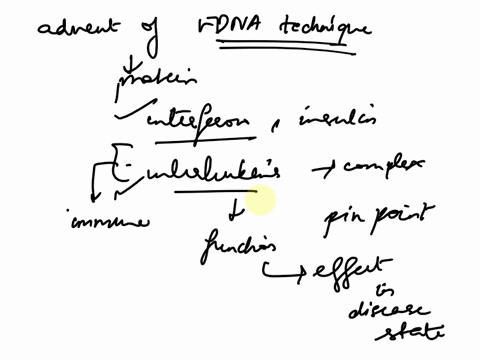 advent of rDNA technique
protein
interferon, insulin
interleukins → complex
immune
pin point
function
→ effect
in
disease
state